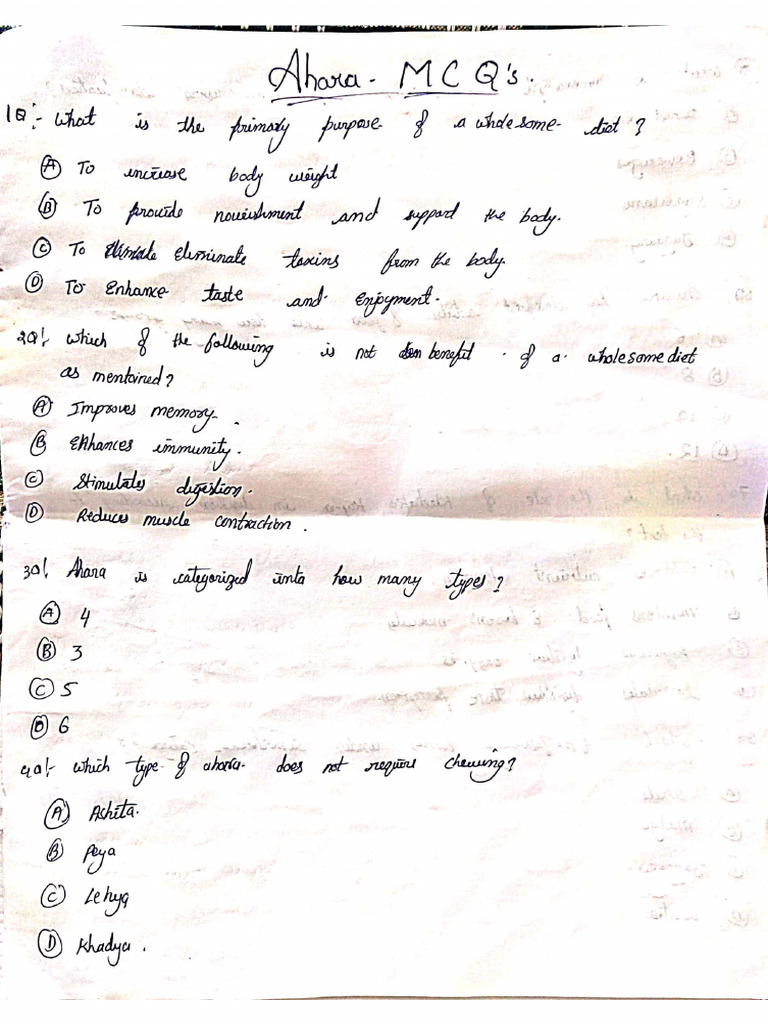 Ahara - MCQ's.
1Q:- What is the primary purpose of a wholesome diet?
A To increase body weight
B To provide nourishment and support the body.
C To Eliminate toxins from the body.
D To Enhance taste and Enjoyment.
2Q:- which of the following is not benefit of a wholesome diet
as mentioned?
A Improves memory.
B Enhances immunity.
C Stimulates digestion.
D Reduces muscle contraction.
3Q:- Ahara is categorized into how many types?
A 4
B 3
C 5
D 6
4Q:- which type of ahara does not require chewing?
A Ashita.
B Peya
C Lehya
D Khadya.